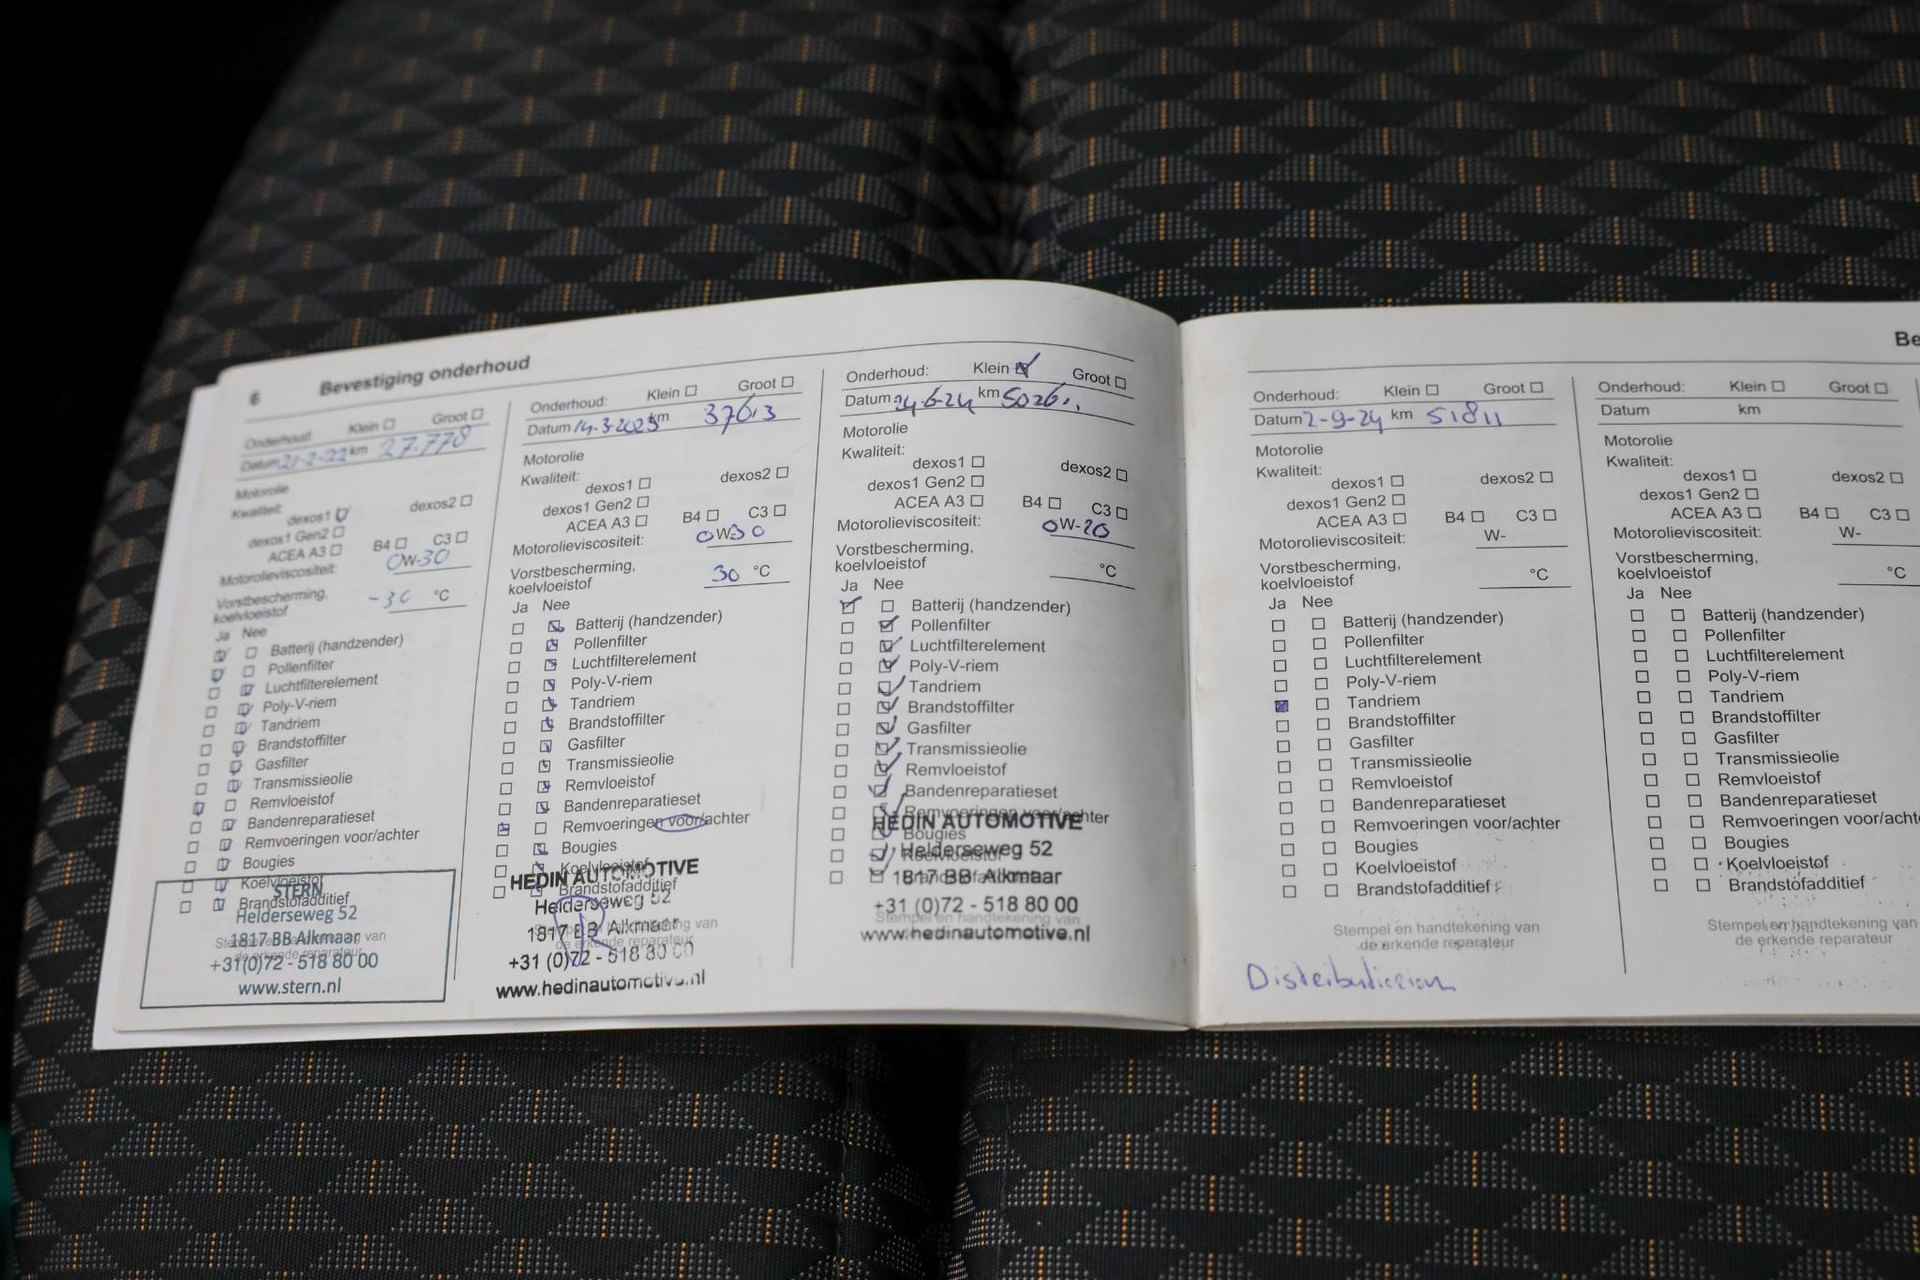 6 Bevestiging onderhoud
Onderhoud: Klein Groot
Datum 21-2-22 km 27.778
Motorolie
Kwaliteit:
dexos1 dexos2
dexos1 Gen2
ACEA A3 B4 C3
Motorolieviscositeit: 0W-30
Vorstbescherming,
koelvloeistof -30 °C
Ja Nee
Batterij (handzender)
Pollenfilter
Luchtfilterelement
Poly-V-riem
Tandriem
Brandstoffilter
Gasfilter
Transmissieolie
Remvloeistof
Bandenreparatieset
Remvoeringen voor/achter
Bougies
Koelvloeistof
Brandstofadditief
Stempel en handtekening van
de erkende reparateur
STERN
Helderseweg 52
1817 BB Alkmaar
+31(0)72 - 518 80 00
www.stern.nl
Onderhoud: Klein Groot
Datum 14-3-2023 km 37613
Motorolie
Kwaliteit:
dexos1 dexos2
dexos1 Gen2
ACEA A3 B4 C3
Motorolieviscositeit: 0W-30
Vorstbescherming,
koelvloeistof 30 °C
Ja Nee
Batterij (handzender)
Pollenfilter
Luchtfilterelement
Poly-V-riem
Tandriem
Brandstoffilter
Gasfilter
Transmissieolie
Remvloeistof
Bandenreparatieset
Remvoeringen voor/achter
Bougies
Koelvloeistof
Brandstofadditief
Stempel en handtekening van
de erkende reparateur
HEDIN AUTOMOTIVE
Helderseweg 52
1817 BB Alkmaar
+31 (0)72 - 518 80 00
www.hedinautomotive.nl
Onderhoud: Klein Groot
Datum 24-6-24 km
Motorolie
Kwaliteit:
dexos1 dexos2
dexos1 Gen2
ACEA A3 B4 C3
Motorolieviscositeit: 0W-20
Vorstbescherming,
koelvloeistof °C
Ja Nee
Batterij (handzender)
Pollenfilter
Luchtfilterelement
Poly-V-riem
Tandriem
Brandstoffilter
Gasfilter
Transmissieolie
Remvloeistof
Bandenreparatieset
Remvoeringen voor/achter
Bougies
Koelvloeistof
Brandstofadditief
Stempel en handtekening van
HEDIN AUTOMOTIVE
Helderseweg 52
1817 BB Alkmaar
+31 (0)72 - 518 80 00
www.hedinautomotive.nl
Be
Onderhoud: Klein Groot
Datum 2-9-24 km 51811
Motorolie
Kwaliteit:
dexos1 dexos2
dexos1 Gen2
ACEA A3 B4 C3
Motorolieviscositeit: W-
Vorstbescherming,
koelvloeistof °C
Ja Nee
Batterij (handzender)
Pollenfilter
Luchtfilterelement
Poly-V-riem
Tandriem
Brandstoffilter
Gasfilter
Transmissieolie
Remvloeistof
Bandenreparatieset
Remvoeringen voor/achter
Bougies
Koelvloeistof
Brandstofadditief
Stempel en handtekening van
de erkende reparateur
Onderhoud: Klein Groot
Datum km
Motorolie
Kwaliteit:
dexos1 dexos2
dexos1 Gen2
ACEA A3 B4 C3
Motorolieviscositeit: W-
Vorstbescherming,
koelvloeistof °C
Ja Nee
Batterij (handzender)
Pollenfilter
Luchtfilterelement
Poly-V-riem
Tandriem
Brandstoffilter
Gasfilter
Transmissieolie
Remvloeistof
Bandenreparatieset
Remvoeringen voor/acht
Bougies
Koelvloeistof
Brandstofadditief
Stempel en handtekening van
de erkende reparateur